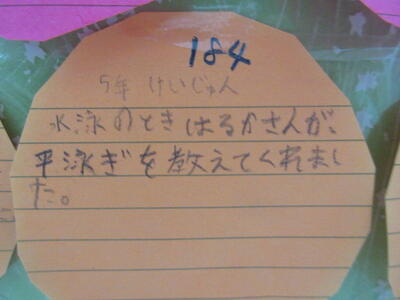 184
5年 けいじゅん
水泳のときはるかさんが、
平泳ぎを教えてくれまし
た。